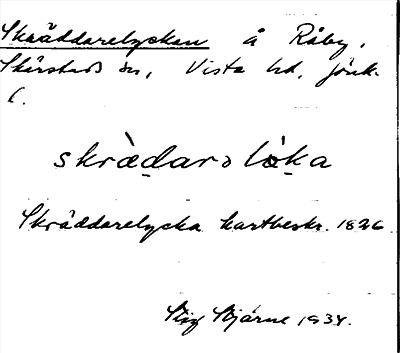 Skräddarelyckan å Råby,
Skärstads sn, Vista hd, Jönk.
l.
skrä̀daro lø̀ka
Skräddarelycka kartbeskr. 1826
Stig Bjärne 1934.